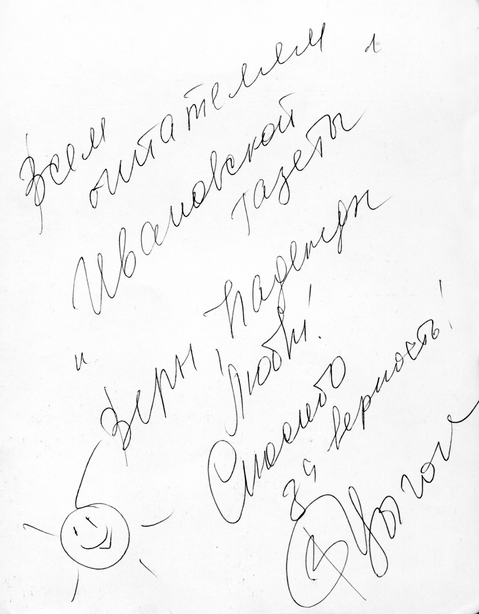 Всем
читателям
Ивановской
газеты
"
Веры, Надежды
Любви!
Спасибо
за верность!